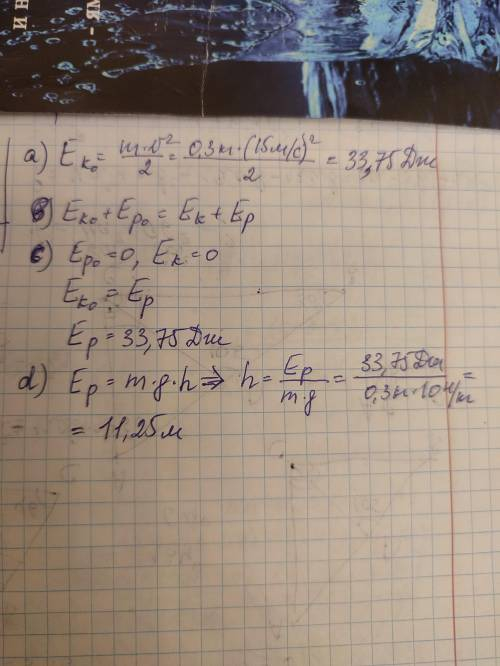 И В
- ЯМ
a) Eк₀ = m·v²/2 = 0,3кг·(15м/с)²/2 = 33,75 Дж
b) Eк₀ + Eр₀ = Eк + Eр
c) Eр₀ = 0, Eк = 0
Eк₀ = Eр
Eр = 33,75 Дж
d) Eр = m·g·h ⇒ h = Eр/m·g = 33,75 Дж/0,3кг·10 Н/кг =
= 11,25 м